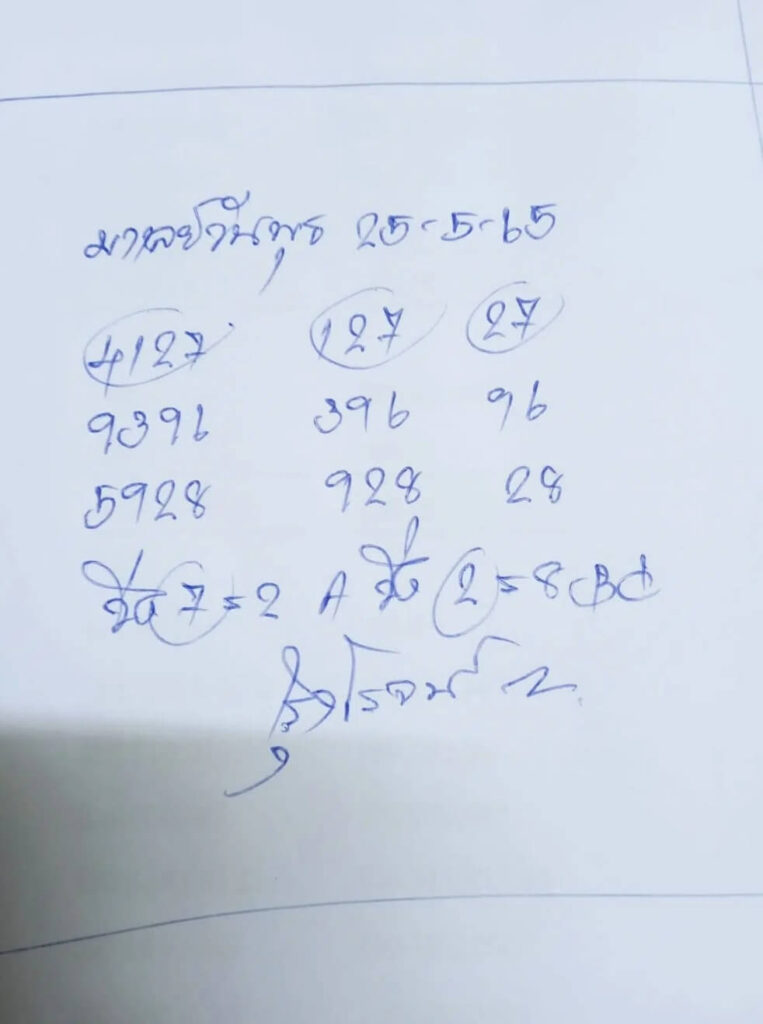 มาเลย์วันพุธ 25-5-65
4127 127 27
9396 396 96
5928 928 28
7=2 A 2=8 BC
รุ่งโรจน์